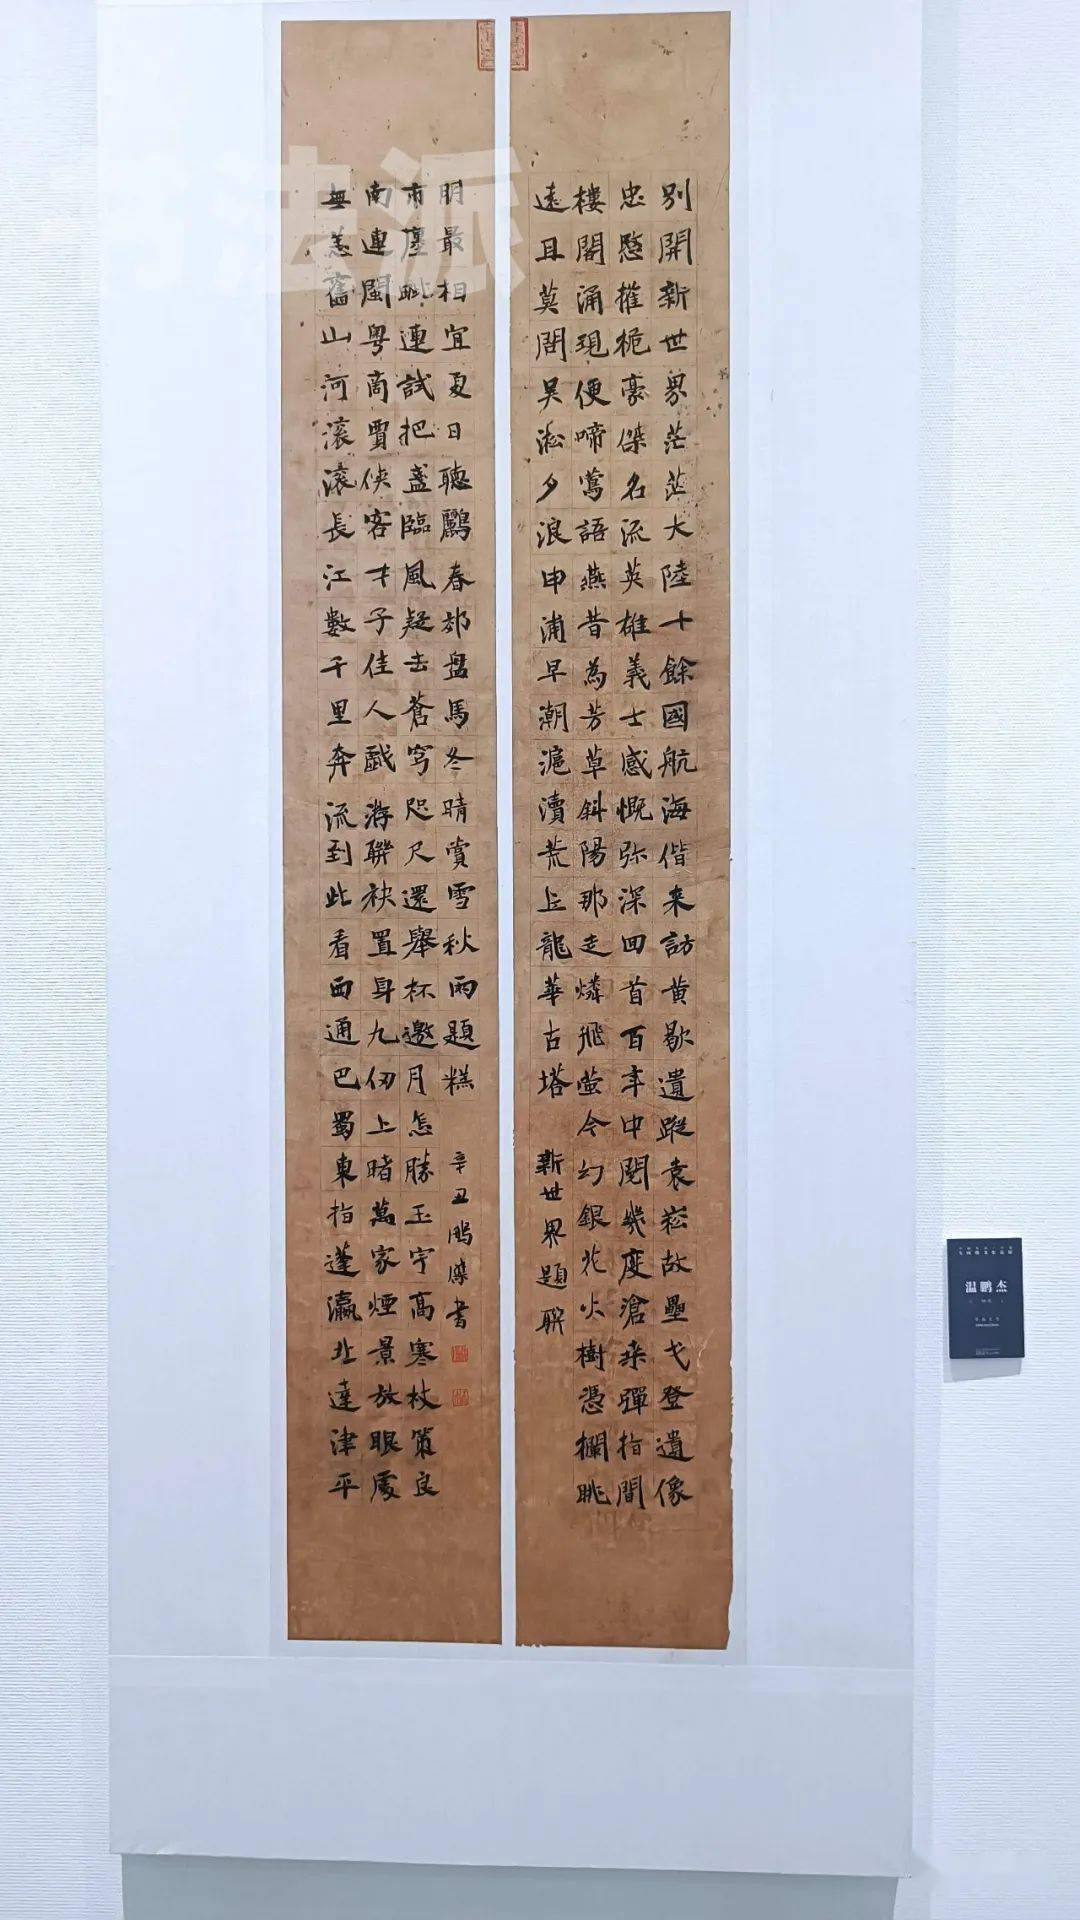 別開新世界茫茫大陸十餘國航海偕來訪黃歇遺蹤袁崧故壘弋登遺像
忠愍權桅豪傑名流英雄義士感慨弥深回首百年中閱幾度滄桒彈指間
樓閣涌現便啼鶯語燕昔為芳草斜陽那走燐飛螢今幻銀花火樹憑欄眺
遠且莫問吴淞夕浪申浦早潮滬瀆荒丘龍華古塔
新世界題聯
無恙舊山河滾滾長江數千里奔流到此看西通巴蜀東指蓬瀛北達津平
南連閩粵商賈俠客才子佳人戲游聯袂置身九仞上睹萬家煙景放眼處
市廛毗連試把盞臨風疑去蒼穹咫尺還舉杯邀月怎勝玉宇高寒杖策良
明最相宜夏日聽鸝春郊盤馬冬晴賞雪秋雨題糕
辛丑鵬傑書
温鹏杰
法派